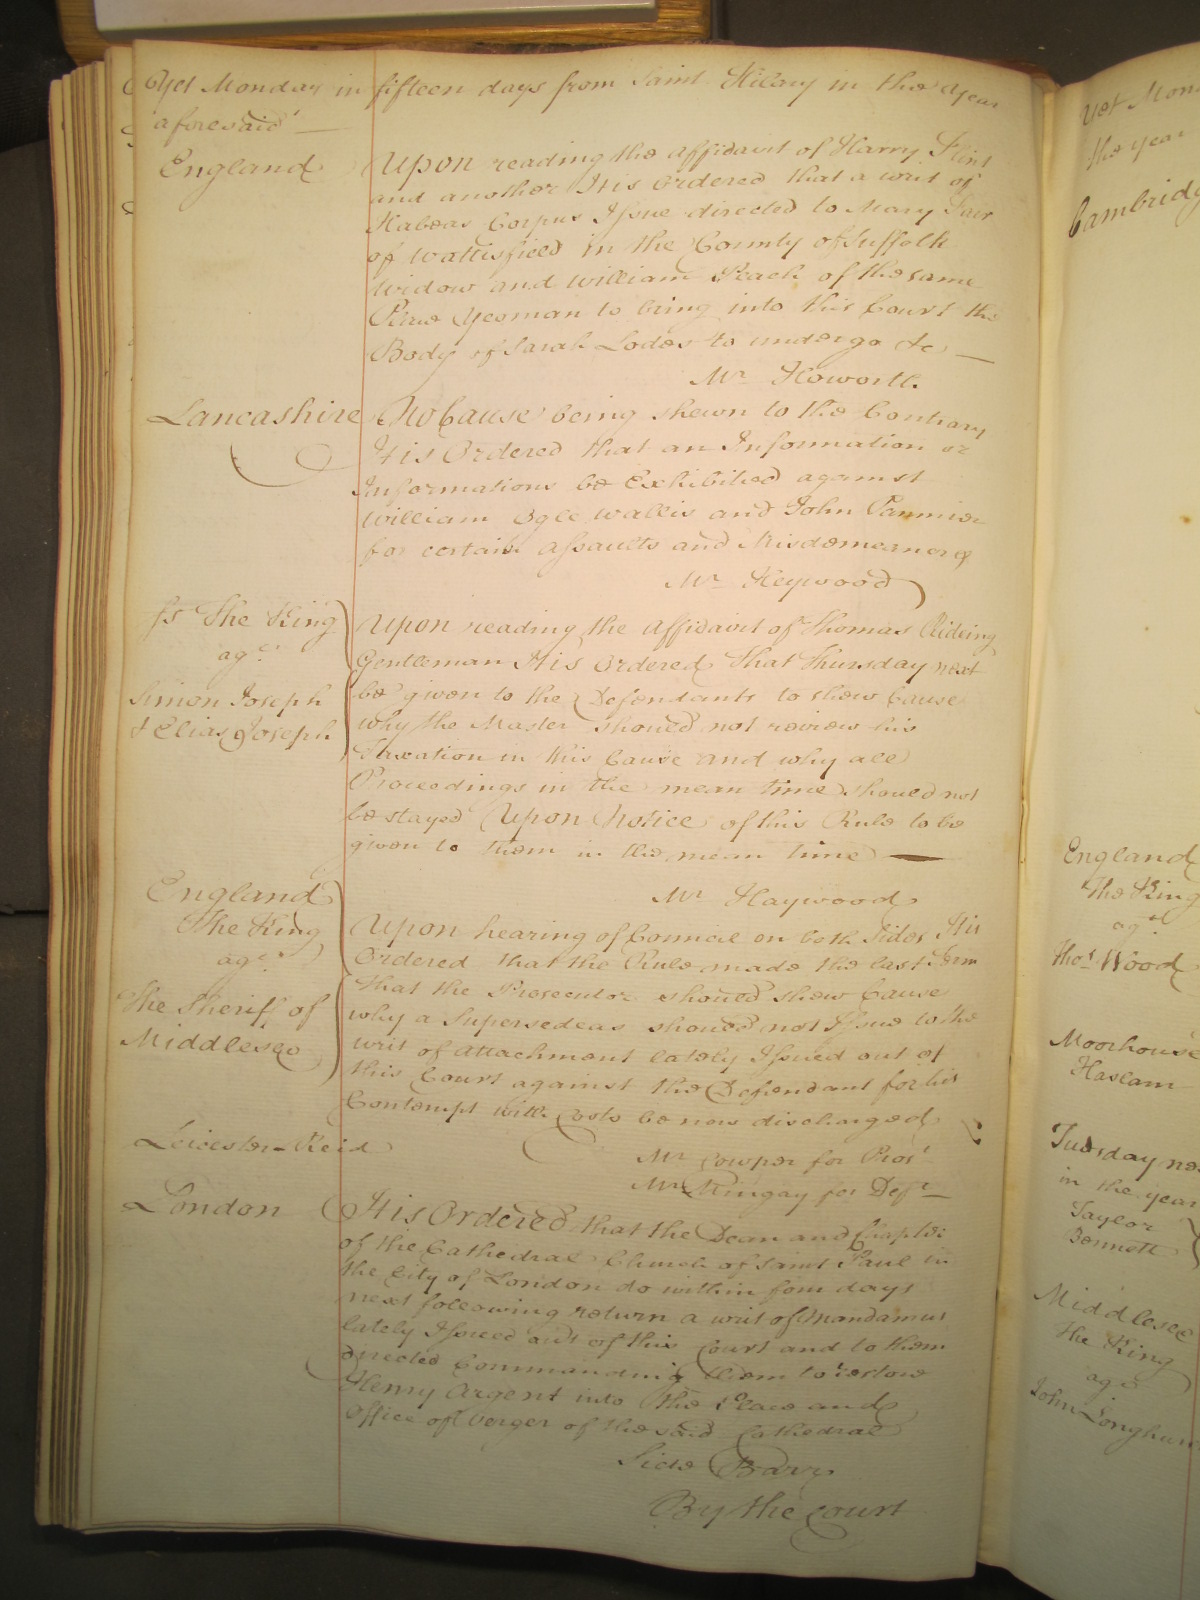 Yet Monday in fifteen days from Saint Hilary in the Year
aforesaid
England
Upon reading the Affidavit of Harry Flint
and another It is Ordered that a writ of
Habeas Corpus Issue directed to Mary Fair
of Wattisfield in the County of Suffolk
Widow and William Peach of the same
Place Yeoman to bring into this Court the
Body of Sarah Lodes to undergo &c
Mr Howorth
Lancashire
No Cause being shewn to the Contrary
It is Ordered that an Information or
Informations be Exhibited against
William Ogle Wallis and John Pannier
for certain Assaults and Misdemeanors
Mr Heywood
The King
agt
Simon Joseph
& Elias Joseph
Upon reading the Affidavit of Thomas
Gentleman It is Ordered that Thursday next
be given to the Defendants to shew Cause
why the Master should not review his
Taxation in this Cause and why all
Proceedings in the mean time should not
be stayed Upon Notice of this Rule to be
given to them in the mean time
Mr Haywood
England
The King
agt
The Sheriff of
Middlesex
Upon hearing of Councel on both Sides It is
Ordered that the Rule made the last Term
that the Prosecutor should shew Cause
why a Supersedeas should not Issue to the
writ of Attachment lately Issued out of
this Court against the Defendant for his
Contempt with Costs be now discharged
Leicester
Mr Cowper for Prosr
Mr Mingay for Deft
London
It is Ordered that the Dean and Chapter
of the Cathedral Church of Saint Paul in
the City of London do within four days
next following return a writ of Mandamus
lately Issued out of this Court and to them
directed Commanding them to restore
Henry Argent into the Place and
Office of Verger of the said Cathedral
Side Barr
By the Court
Yet Mon
the year
Cambridg
England
The King
agt
Thos Wood
Moorhouse
Haslam
Tuesday ne
in the year
Taylor
Bennett
Middlesex
The King
agt